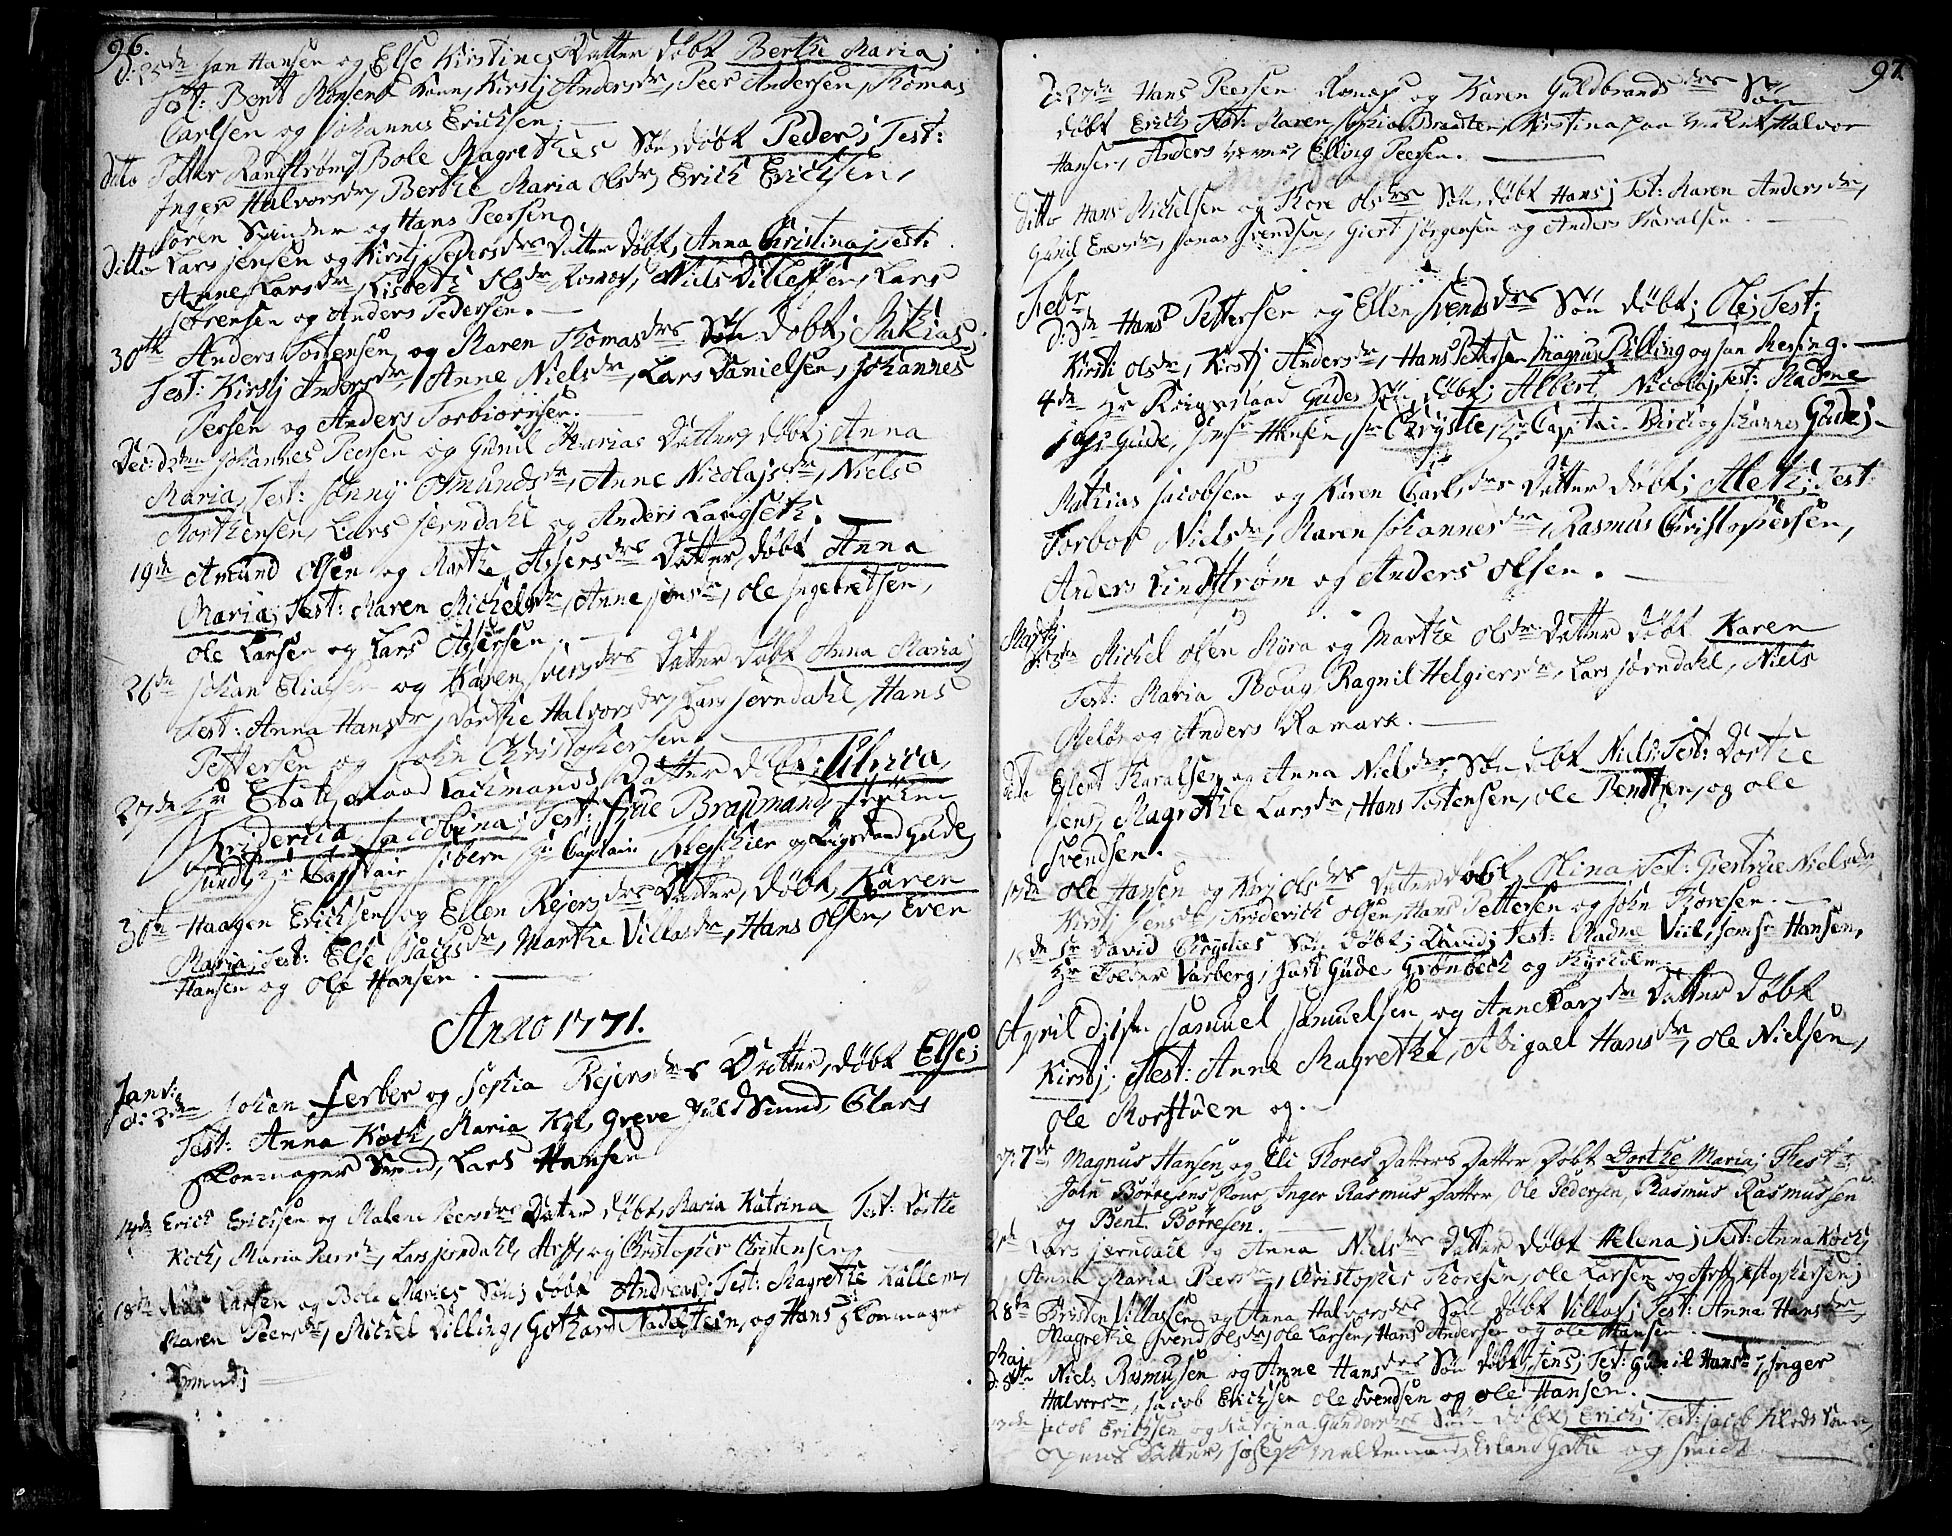 96.
d: 25de Jan Hansen og Else Kirstines Datter døbt Berthe Maria;
Test: Bent Monsens Kone, Kirstj Andersdr, Peer Andersen, Thomas
Carlsen og Johannes Erichsen.
Ditto Petter Rangstrøm, Bole Magrethes Søn, døbt Peder; Test:
Inger Halvorsdr, Berthe Maria Olsdr, Erich Erichsen,
Søren Svinder og Hans Peersen
Ditto Lars Jensen og Kirstj Pedersdrs Datter døbt, Anna Christina; Test:
Anne Larsdr, Lisbeth Olsdr Romøs, Niels Villessen, Lars
Sørensen og Anders Pedersen.
30th Anders Tostensen og Maren Thomasdrs Søn døbt; Mathias,
Test: Kirstj Andersdr, Anne Nielsdr, Lars Danielsen, Johannes
Persen og Anders Torbiørnsen.
Dec: d: Johannes Peersen og Gunil Marias Datter, døbt; Anna
Maria, Test: Jønny Omundsdr, Anne Nicolajsdr, Niels
Morthensen, Lars Jerndahl og Anders Langseth.
19de Amund Olsen og Marthe Assersdrs Datter, døbt Anna
Maria; Test: Maren Michelsdr, Anne Jensdr, Ole Ingebretsen,
Ole Larsen og Lars Assersen.
26de Johan Eliasen og Karen Svensdrs Datter døbt Anna Maria;
Test: Anna Hansdr, Dorthe Halvorsdr, Lars Jerndahl, Hans
Pettersen og John Christophersen.
27de Hr Etatsraad Lachmands Datter døbt; Ulrica
Friderica Jacobina; Test: Frue Braumand,
Sund, Hr Captain Sibern Hr Captain og Krigsraad Gude;
30te Haagen Erichsen og Ellen Rejersdrs Datter, døbt, Karen
Maria; Test: Else Isachsdr, Marthe Villasdr, Hans Olsen, Even
Hansen og Ole Hansen.
Anno 1771.
Janvi
d: 2den Johan Ferber og Sophia Rejersdrs Datter, døbt Else;
Test: Anna Koch, Maria Kyl, Greve Juel Smed, Clars
Flommager Smed, Lars Hansen
14de Erich Erichsen og Malene Peersdrs Datter døbt, Maria Katrina Test: Dorthe
Koch, Maria Peersdr, Lars Jerndahl, Arff, og Christopher Christensen,
18de Niels Larsen og Bole Maries Søn; døbt Andreas; Test: Magrethe Kullem,
Maren Peersdr, Michel Dilling, Gothard Nadelstein, og Hans Flommager
Smed;
97
d: 27de Hans Peersen Romøs og Karen Guldbrandsdrs Søn
døbt Erich, Test: Maren Sophia Bradsten, Kirstina paa Verket Halvor
Hansen, Anders Elling Peersen.
Ditto Hans Michelsen og Thore Olsdrs Søn, døbt Hans; Test: Maren Andersdr,
Gunil Evensdr, Jonas Svendsen, Giert Jørgensen og Anders Haralsen
Febr
d: 3de Hans Pettersen og Ellen Svendsdrs Søn døbt; Ole; Test:
Kirsti Olsdr, Kirstj Andersdr, Hans Pettersen Magnus Pilling og Jan Mesing.
4de Hr Krigsraad Gudes Søn, døbt; Albert Nicolaj Test: Madme
Gude, Hansen, Sr Chrystie, Hr Captain Birch og Johannes Gude;
Mathias Jacobsen og Karen Carlsdrs Datter døbt; Alethe; Test:
Torbor Nielsdr, Maren Johannesdr, Rasmus Christophersen,
Anders Lindstrøm og Anders Olsen.
Martj
d: 3de Michel Olsen Myra og Marthe Olsdrs Datter døbt Karen
Test: Maria Boug, Ragnil Helgiersdr, Lars Jerndahl, Niels
Meløs og Anders Ramark.
Dito Elent Haralsen og Anna Nielsdrs Søn døbt Niels; Test: Dorthe
Jens, Magrethe Larsdr, Hans Tostensen, Ole Bendtsen, og Ole
Svendsen.
Ole Hansen og Kirstj Olsdrs Datter døbt, Olina, Test: Giertrue Nielsdr,
Kirstj Jensdr, Friderich Olsen, Hans Pettersen og John Thoresen.
Sr David Chrysties Søn døbt; David; Test: Madme Viel, Hansen,
Hr Tolder Varberg, Just Gude Grønbech og Kyrholm
April d: 1ste Samuel Samuelsen og Anne Larsdr Datter døbt
Kirstj; Test: Anne Magrethe, Abigael Hansdr, Ole Nielsen,
Ole Morstuen og.
d: 7de Magnus Hansen og Eli Thores Datters Datter Døbt Dorthe Maria; Thest:
John Børresens Kone, Inger Rasmus Datter, Ole Pedersen, Rasmus Rasmussen
og Bent Børresen.
21de Lars Jerndahl og Anna Nielsdrs Datter døbt Helena; Test: Anna Koch,
Anna Maria Peersdr, Christopher Thoresen, Ole Larsen og Arff
28de Christen Villassen og Anna Halvorsdrs Søn døbt Villas; Test: Anna Hansdr,
Magrethe Svend Olsdr, Ole Larsen, Hans Andersen og Ole Hansen.
Maj
d: 5te Niels Rasmusen og Anne Hansdrs Søn døbt; Jens; Test: Gunil Hansdr, Inger
Halvorsdr, Jacob Erichsen Ole Svendsen og Ole Hansen.
Jacob Erichsen og Katrina Gundersdrs Søn døbt; Erich; Test: Jacob
Datter, Joseph Erland Gothe og Smidt